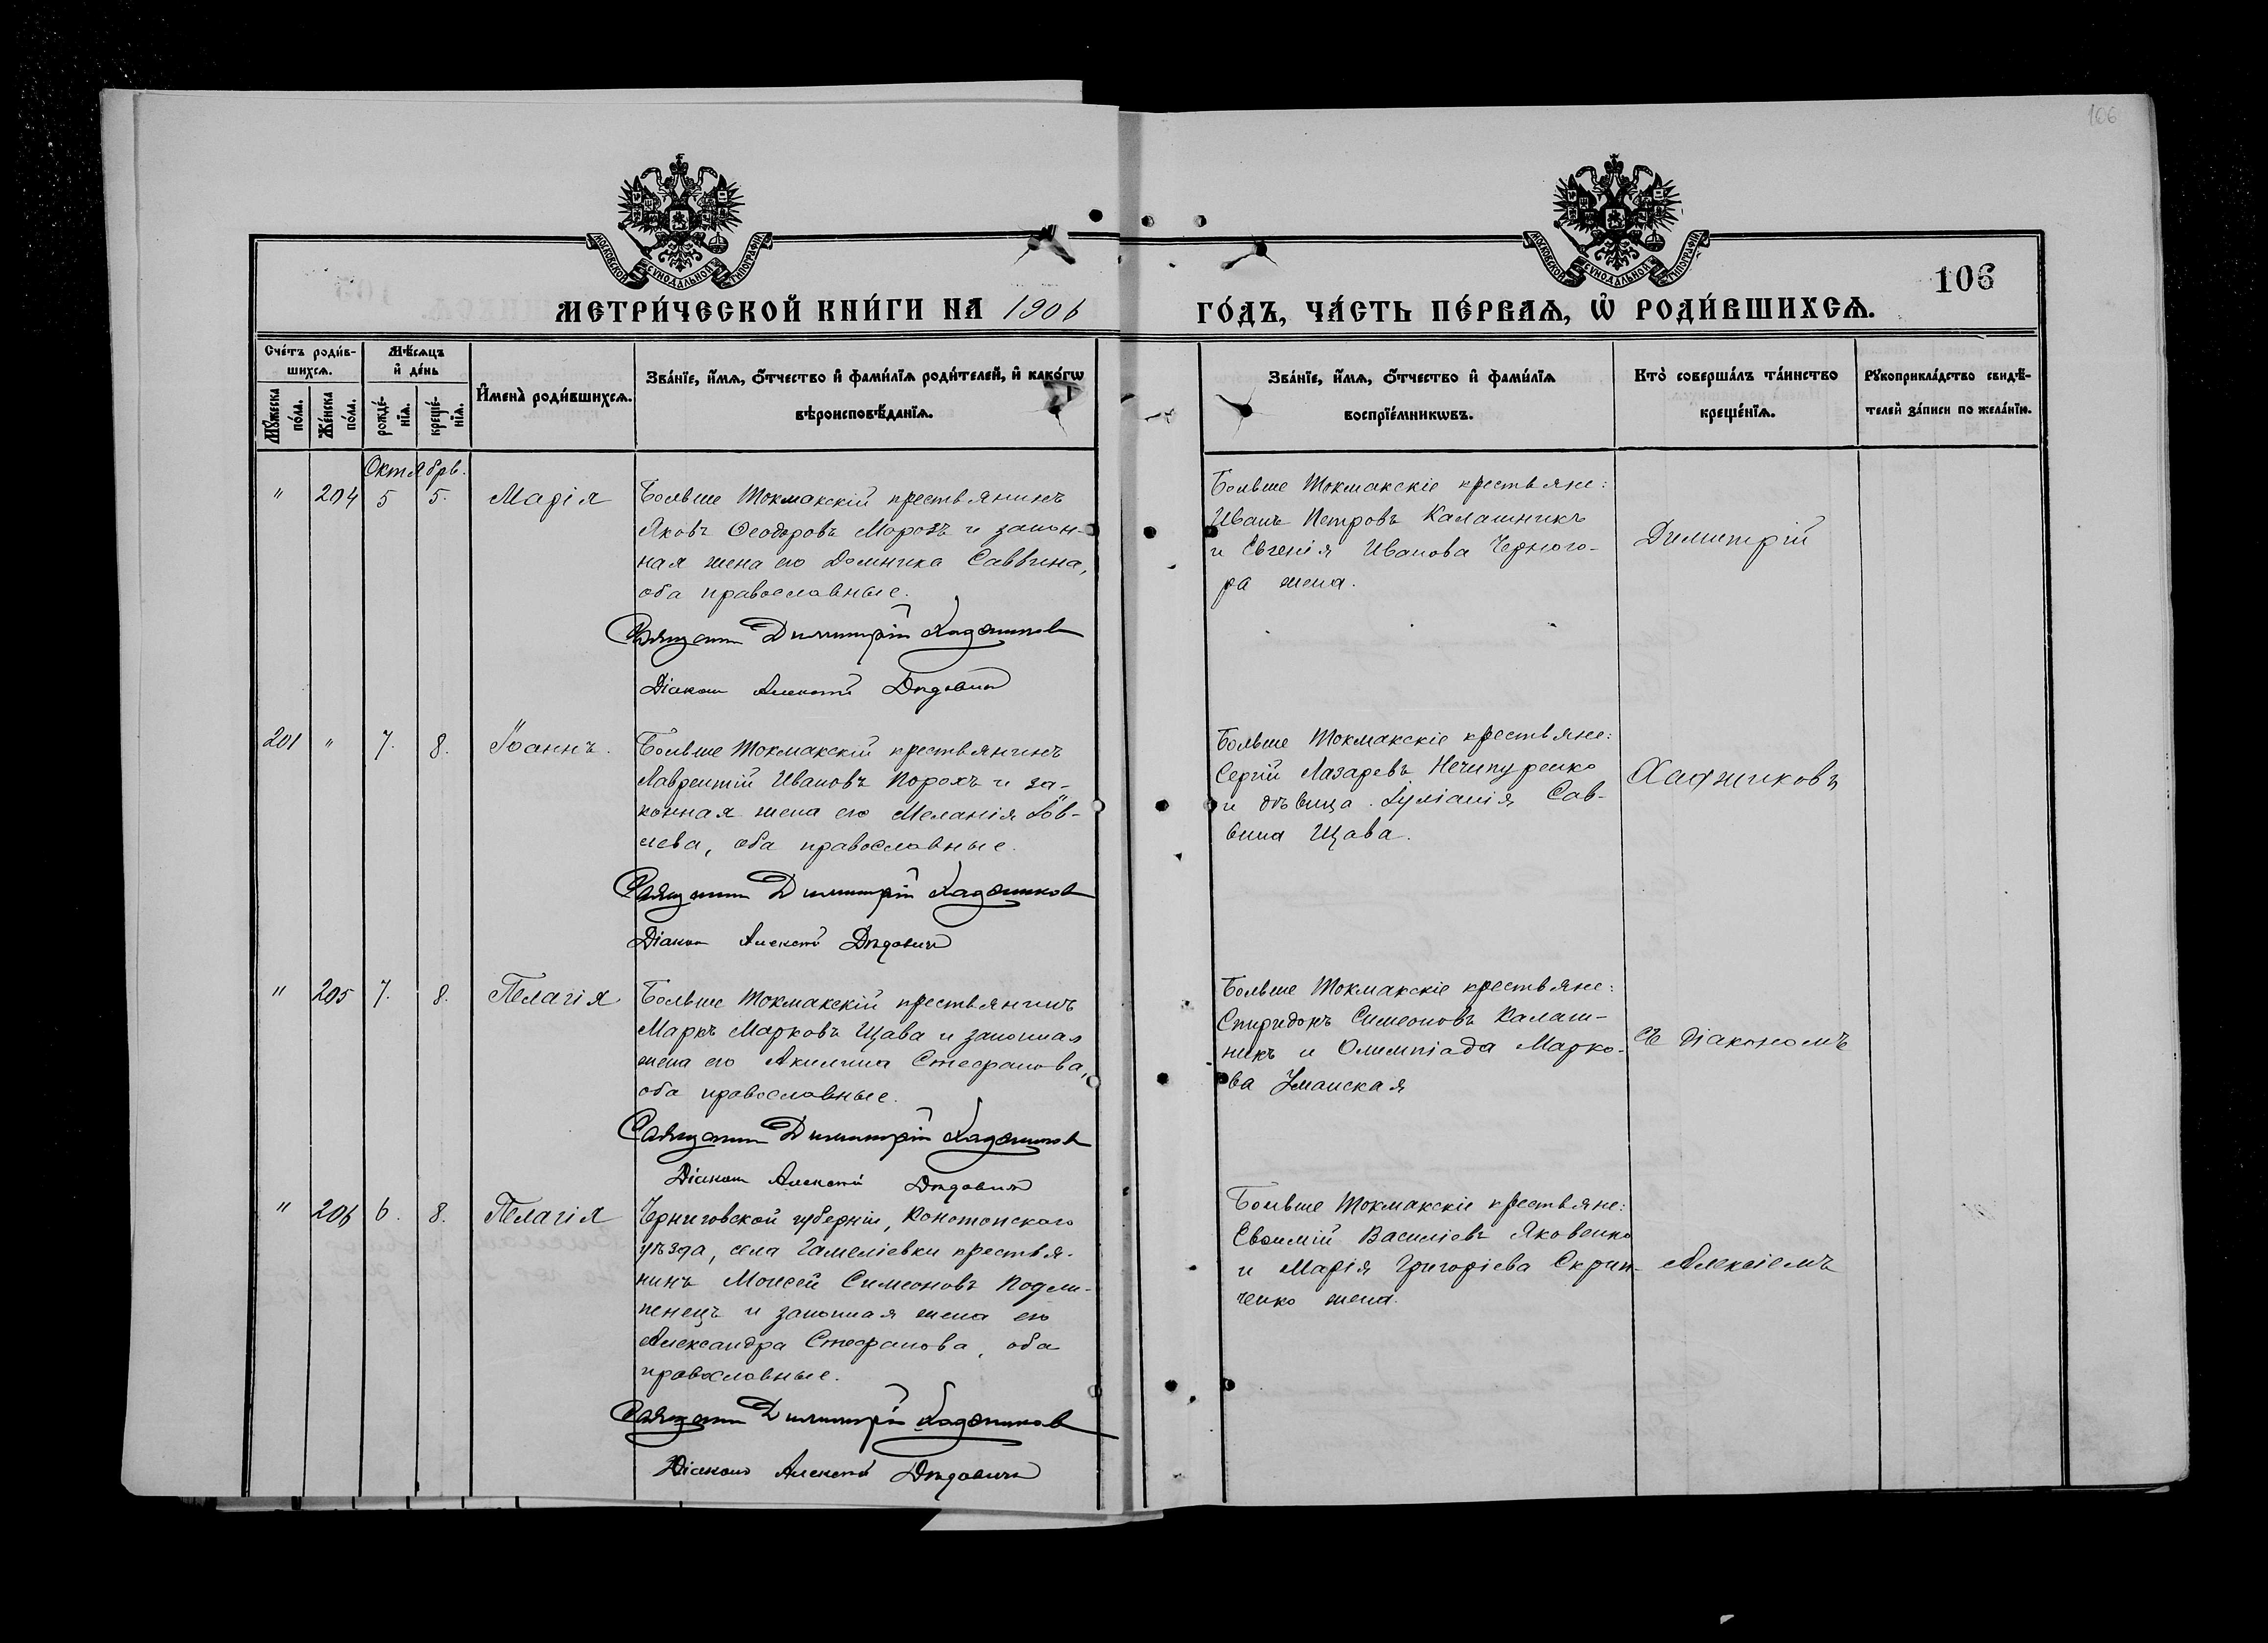 106
МОСКОВСКОЙ СѴНОДАЛЬНОЙ ТИПОГРАФІИ
МОСКОВСКОЙ СѴНОДАЛЬНОЙ ТИПОГРАФІИ
106
МЕТРИ́ЧЕСКОЙ КНИ́ГИ НА 1906
ГО́ДЪ, ЧА́СТЬ ПЕ́РВАѦ, Ѽ РОДИ́ВШИХСѦ.
Сче́тъ роди́в-
шихсѧ.
Мꙋ́жеска
по́ла.
Же́нска
по́ла.
Мѣ́сѧцъ
и҆ де́нь
рожде́-
нїѧ.
креще́-
нїѧ.
И҆мена̀ роди́вшихсѧ.
Зва́нїе, и҆́мѧ, ѻ҆́тчество и҆ фами́лїѧ роди́телей, и҆ како́гѡ
вѣроисповѣ́данїѧ.
Зва́нїе, и҆́мѧ, ѻ҆́тчество и҆ фами́лїѧ
воспрїе́мникѡвъ.
Кто̀ соверша́лъ та́инство
креще́нїѧ.
Рꙋкоприкла́дство свидѣ́-
телей за́писи по жела́нїю.
Октябрь.
" 204 5 5. Марія
Больше Токмакскій крестьянинъ
Яковъ Ѳеодоровъ Морозъ и закон-
ная жена его Домника Саввина,
оба православные.
Димитрій
Діаконъ Алексѣй Дѣдовичъ
Больше Токмакскіе крестьяне:
Иванъ Петровъ Калашникъ
и Евгенія Иванова Черного-
ра жена.
Димитрій
201 " 7. 8. Іоаннъ.
Больше Токмакскій крестьянинъ
Лаврентій Ивановъ Порохъ и за-
конная жена его Меланія Іов-
лева, оба православные.
Димитрій
Діаконъ Алексѣй Дѣдовичъ
Больше Токмакскіе крестьяне:
Сергій Лазаревъ Нечипуренко
и дѣвица Іуліанія Сав-
вина Щава.
" 205 7. 8. Пелагія
Больше Токмакскій крестьянинъ
Маркъ Марковъ Щава и законная
жена его Акилина Стефанова,
оба православные.
Димитрій
Діаконъ Алексѣй Дѣдовичъ
Больше Токмакскіе крестьяне:
Спиридонъ Симеоновъ Калаш-
никъ и Олимпіада Марко-
ва Уманская
съ діакономъ
" 206 6. 8. Пелагія
Черниговской губерніи, Конотопскаго
уѣзда, села Гамеліевки крестья-
нинъ Моисей Симеоновъ
и законная жена его
Александра Стефанова, оба
православные.
Димитрій
Діаконъ Алексѣй Дѣдовичъ
Больше Токмакскіе крестьяне:
Евѳимій Василіевъ Яковенко
и Марія Григоріева Скрип-
ченко жена.
Алексіемъ